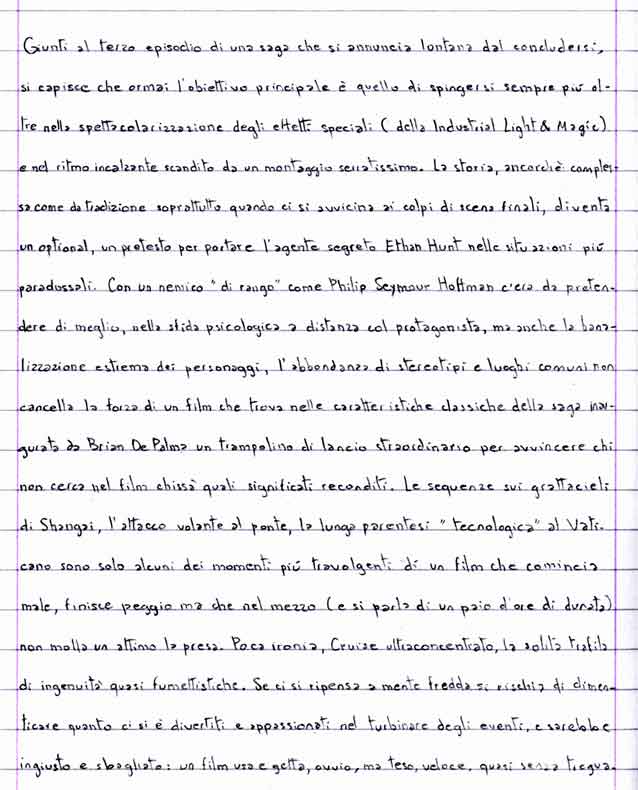 Giunti al terzo episodio di una saga che si annuncia lontana dal concludersi,
si capisce che ormai l'obiettivo principale è quello di spingersi sempre più ol-
tre nella spettacolarizzazione degli effetti speciali (della Industrial Light & Magic)
e nel ritmo incalzante scandito da un montaggio serratissimo. La storia, ancorchè comples-
sa come da tradizione soprattutto quando ci si avvicina ai colpi di scena finali, diventa
un optional, un pretesto per portare l'agente segreto Ethan Hunt nelle situazioni più
paradossali. Con un nemico "di rango" come Philip Seymour Hoffman c'era da preten-
dere di meglio, nella sfida psicologica a distanza col protagonista, ma anche la bana-
lizzazione estrema dei personaggi, l'abbondanza di stereotipi e luoghi comuni non
cancella la forza di un film che trova nelle caratteristiche classiche della saga inau-
gurata da Brian De Palma un trampolino di lancio straordinario per avvincere chi
non cerca nel film chissà quali significati reconditi. Le sequenze sui grattacieli
di Shangai, l'attacco volante al ponte, la lunga parentesi "tecnologica" al Vati-
cano sono solo alcuni dei momenti più travolgenti di un film che comincia
male, finisce peggio ma che nel mezzo (e si parla di un paio d'ore di durata)
non molla un attimo la presa. Poca ironia, Cruise ultraconcentrato, la solita trafila
di ingenuità quasi fumettistiche. Se ci si ripensa a mente fredda si rischia di dimen-
ticare quanto ci si è divertiti e appassionati nel turbinare degli eventi, e sarebbe
ingiusto e sbagliato: un film usa e getta, ovvio, ma teso, veloce, quasi senza tregua.